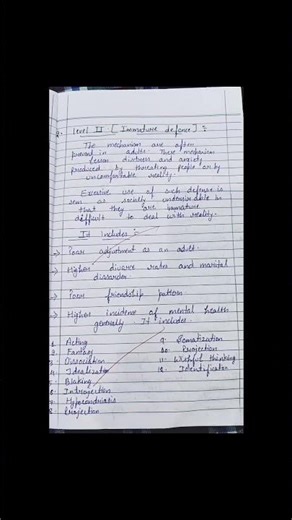 2. Level II [ Immature defence ] :
The mechanism are often
present in adults. These mechanism
lessen distress and anxiety
produced by threating people or by
uncomfortable reality.
Excessive use of such defense is
seen as socially undesirable in
that they are immature
difficult to deal with reality.
It includes :
→ Poor adjustment as an adult.
→ Higher divorce rates and marital
dissorder.
→ Poor friendship pattern
→ Higher incidence of mental health
generally. It includes
1. Acting
2. Fantasy
3. Dissociation
4. Idealization
5. Blaking
6. Introjection
7. Hypocondriasis
8. Projection
9. Somatization
10. Projection
11. Wishful thinking
12. Identification